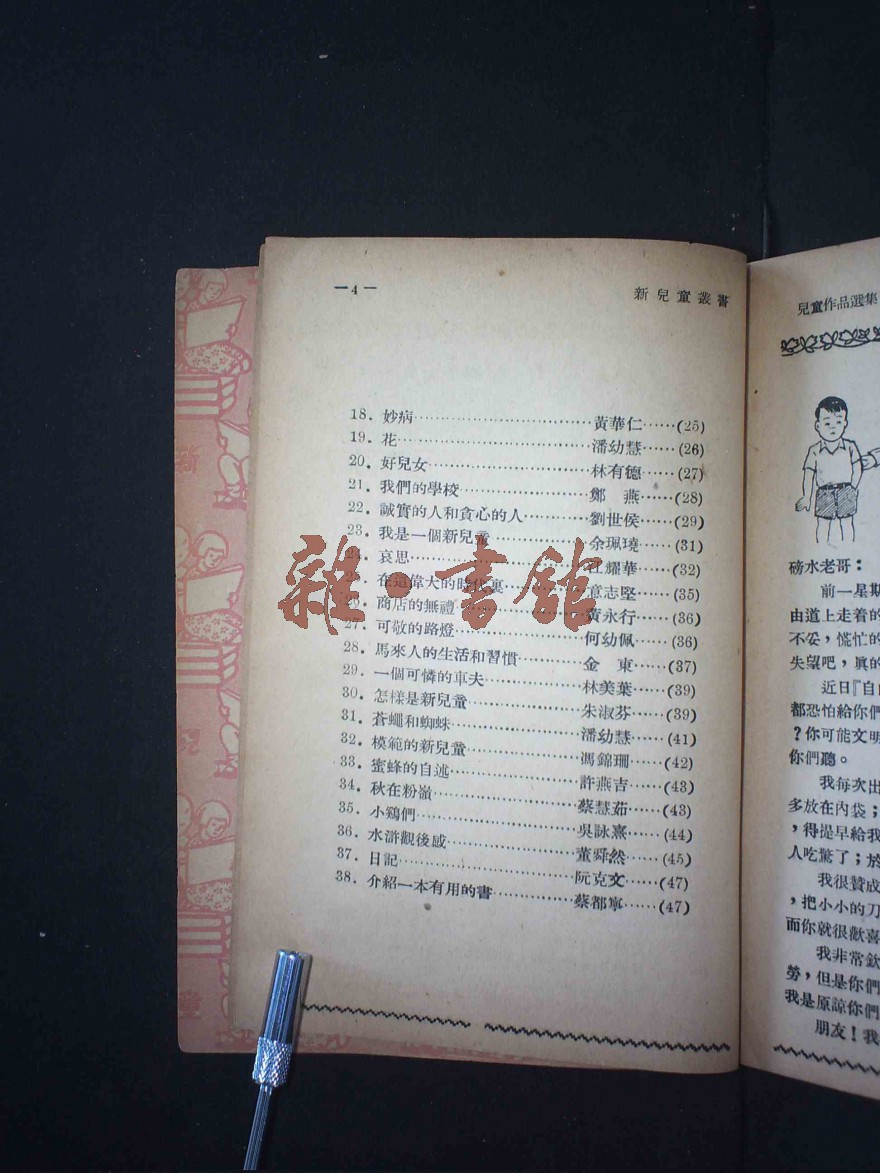 —4—
新兒童叢書
18．妙病……黃華仁……(25)
19．花……潘幼慧……(26)
20．好兒女……林有德……(27)
21．我們的學校……鄭 燕……(28)
22．誠實的人和貪心的人……劉世侯……(29)
23．我是一個新兒童……余珮璄……(31)
24．哀思……江耀華……(32)
25．在這偉大的時代裏……意志堅……(35)
26．商店的無禮……黃永行……(36)
27．可敬的路燈……何幼佩……(36)
28．馬來人的生活和習慣……金 東……(37)
29．一個可憐的車夫……林美葉……(39)
30．怎樣是新兒童……朱淑芬……(39)
31．蒼蠅和蜘蛛……潘幼慧……(41)
32．模範的新兒童……馮錦珊……(42)
33．蜜蜂的自述……許燕吉……(43)
34．秋在粉嶺……蔡慧茹……(43)
35．小鷄們……吳詠熹……(44)
36．水滸觀後感……董舜然……(45)
37．日記……阮克文……(47)
38．介紹一本有用的書……蔡都寧……(47)
雜·書館
兒童作品選集
磅水老哥：
前一星期
由道上走着的
不妥，慌忙的
失望吧，眞的
近日『自由
都恐怕給你們
？你可能文明
你們聽。
我每次出
多放在內袋；
，得提早給我
人吃驚了；於
我很贊成
，把小小的刀
而你就很歡喜
我非常欽
勞，但是你們
我是原諒你們
朋友！我